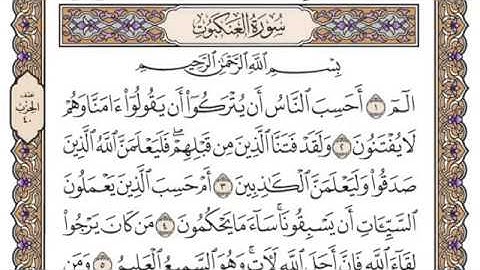 سُورَةُ العَنكَبُوتِ
بِسْمِ ٱللَّهِ ٱلرَّحْمَٰنِ ٱلرَّحِيمِ
الٓمٓ ١ أَحَسِبَ ٱلنَّاسُ أَن يُتْرَكُوٓا۟ أَن يَقُولُوٓا۟ ءَامَنَّا وَهُمْ
لَا يُفْتَنُونَ ٢ وَلَقَدْ فَتَنَّا ٱلَّذِينَ مِن قَبْلِهِمْ ۖ فَلَيَعْلَمَنَّ ٱللَّهُ ٱلَّذِينَ
صَدَقُوا۟ وَلَيَعْلَمَنَّ ٱلْكَٰذِبِينَ ٣ أَمْ حَسِبَ ٱلَّذِينَ يَعْمَلُونَ
ٱلسَّيِّـَٔاتِ أَن يَسْبِقُونَا ۚ سَآءَ مَا يَحْكُمُونَ ٤ مَن كَانَ يَرْجُوا۟
لِقَآءَ ٱللَّهِ فَإِنَّ أَجَلَ ٱللَّهِ لَءَاتٍ ۚ وَهُوَ ٱلسَّمِيعُ ٱلْعَلِيمُ ٥ وَمَن
الحِزْب
٤٠